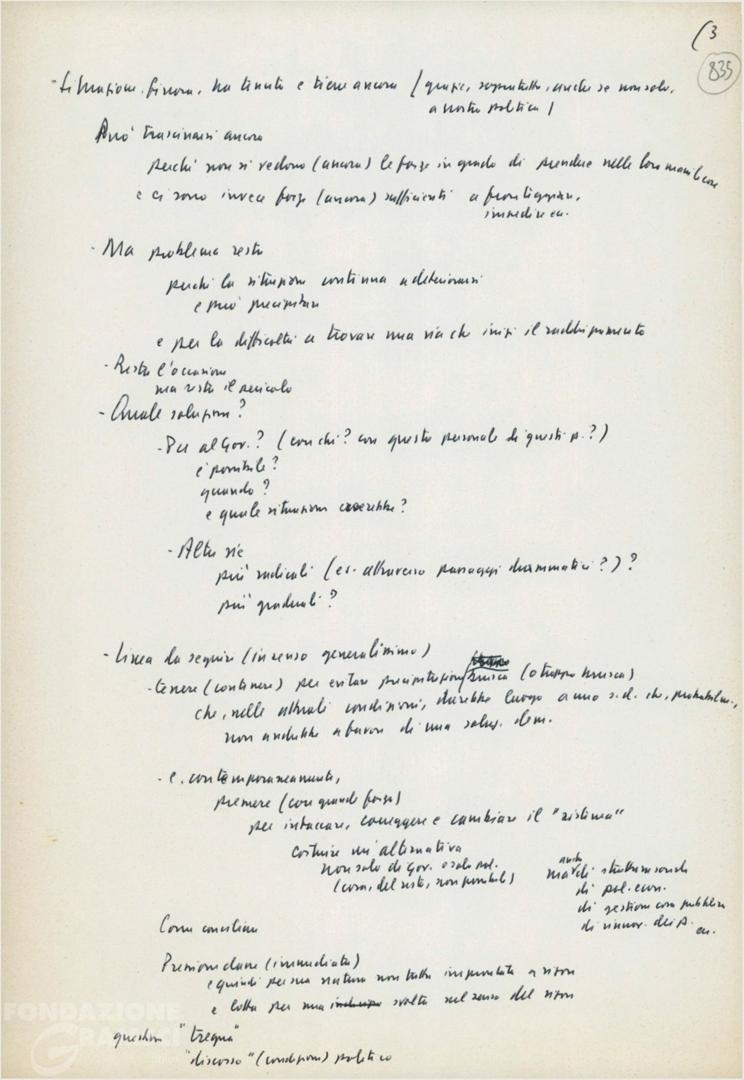 (3
835
- Situazione finora, ha tenuto e tiene ancora (grazie, soprattutto, anche se non solo,
a nostra politica)
Può trascinarsi ancora
perché non si vedono (ancora) le forze in grado di prendere nelle loro mani le cose
e ci sono invece forze (ancora) sufficienti a fronteggiare,
impedire ecc.
- Ma problema resta
perché la situazione continua a deteriorarsi
e può precipitare
e per la difficoltà a trovare una via che inizi il raddrizzamento
- Resta l'occasione
ma resta il pericolo
- Quale soluzione?
- Pci al Gov.? (con chi? con questo personale di questi p.?)
è possibile?
quando?
e quale situazione creerebbe?
- Altre vie
più radicali (es. attraverso passaggi drammatici?)?
più graduali?
- Linea da seguire (in senso generalissimo)
- tenere (contenere) per evitare precipitazione brusca (o troppo brusca)
che, nelle attuali condizioni, darebbe luogo a uno s.d. che, probabilm.,
non andrebbe a favore di una soluz. dem.
- e, contemporaneamente,
premere (con grande forza)
per intaccare, correggere e cambiare il "sistema"
costruire un'alternativa
non solo di Gov. o solo pol.
(cosa, del resto, non possibile)
ma anche di strutture soc.
di pol. econ.
di gestione cosa pubblica
di rinnov. dei p. ecc.
Come conciliare
Pressione dane (immediata)
e quindi per sua natura non tutta improntata a rigore
e lotta per una svolta nel senso del rigore
questioni "tregua"
"discorso" (condizioni) politico
FONDAZIONE
GRAMSCI